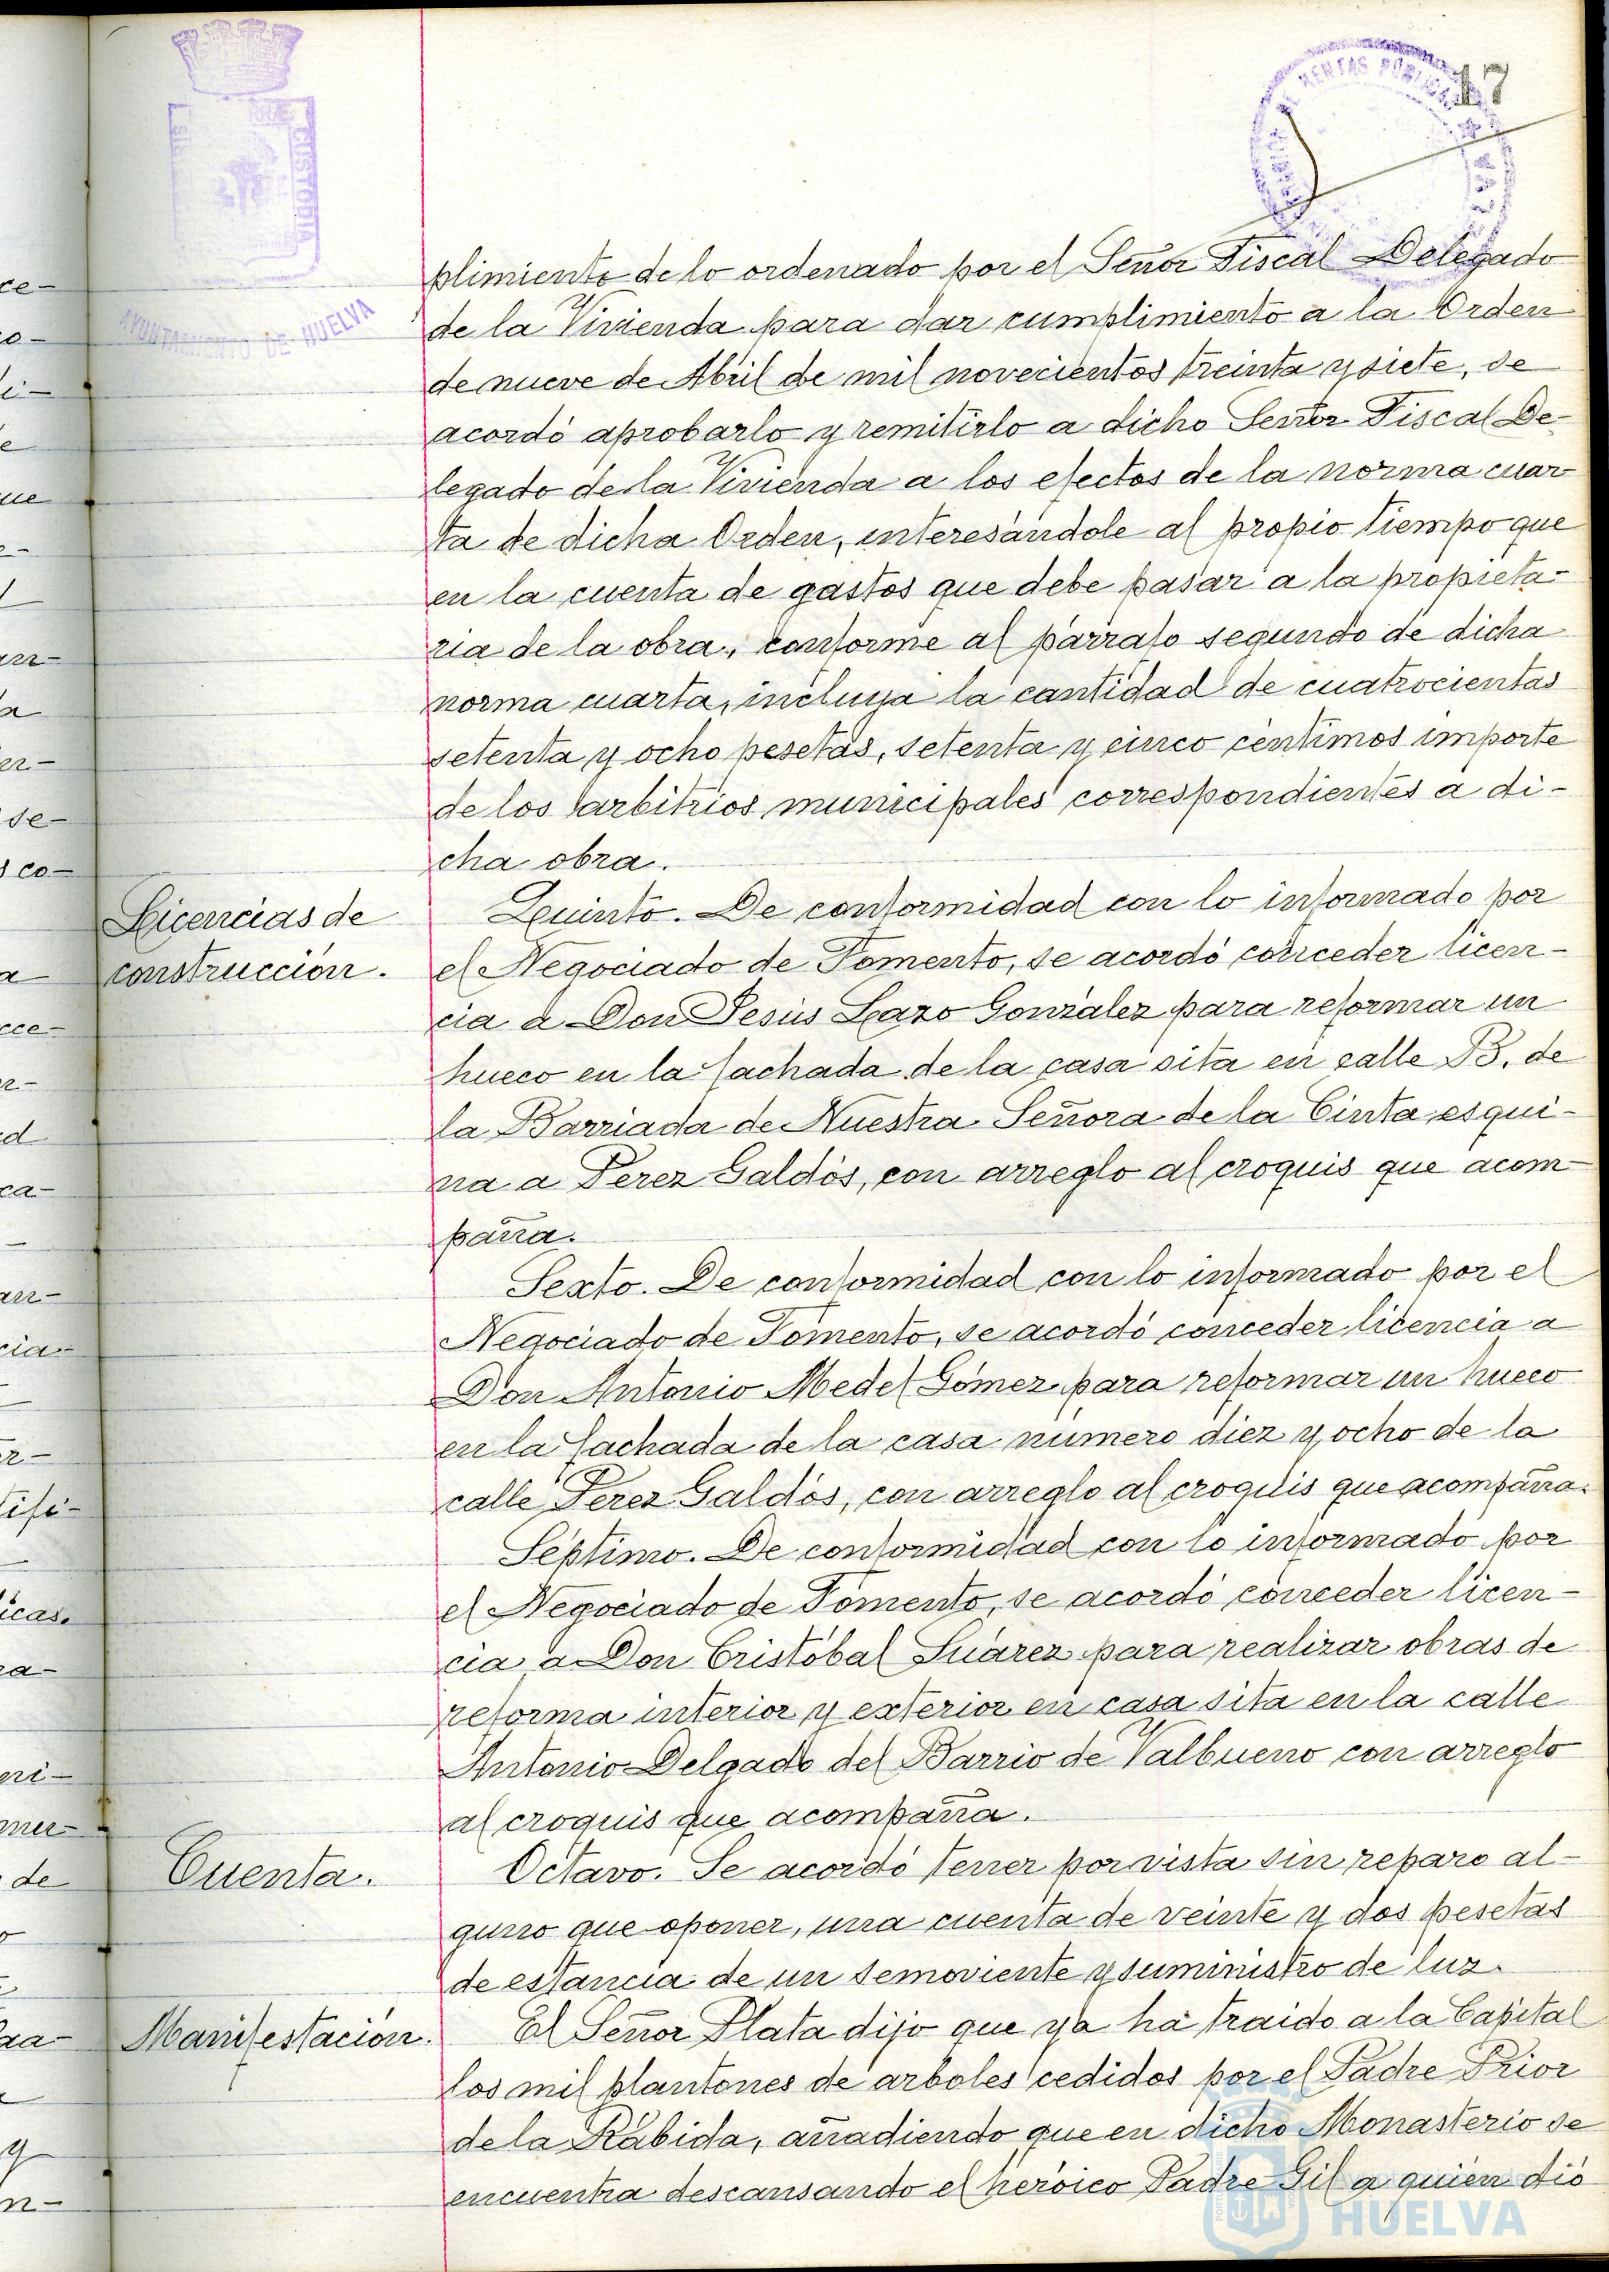 17
AYUNTAMIENTO DE HUELVA
CUSTODIA
RENTAS PUBLICAS
plimiento de lo ordenado por el Señor Fiscal Delegado
de la Vivienda para dar cumplimiento a la Orden
de nueve de Abril de mil novecientos treinta y siete, se
acordó aprobarlo y remitirlo a dicho Señor Fiscal De-
legado de la Vivienda a los efectos de la norma cuar-
ta de dicha Orden, interesándole al propio tiempo que
en la cuenta de gastos que debe pasar a la propieta-
ria de la obra, conforme al párrafo segundo de dicha
norma cuarta, incluya la cantidad de cuatrocientas
setenta y ocho pesetas, setenta y cinco céntimos importe
de los arbitrios municipales correspondientes a di-
cha obra.
Licencias de
construcción.
Quinto. De conformidad con lo informado por
el Negociado de Fomento, se acordó conceder licen-
cia a Don Jesús Lazo González para reformar un
hueco en la fachada de la casa sita en calle B. de
la Barriada de Nuestra Señora de la Cinta esqui-
na a Perez Galdós, con arreglo al croquis que acom-
paña.
Sexto. De conformidad con lo informado por el
Negociado de Fomento, se acordó conceder licencia a
Don Antonio Medel Gómez para reformar un hueco
en la fachada de la casa número diez y ocho de la
calle Perez Galdós, con arreglo al croquis que acompaña.
Séptimo. De conformidad con lo informado por
el Negociado de Fomento, se acordó conceder licen-
cia a Don Cristóbal Suárez para realizar obras de
reforma interior y exterior en casa sita en la calle
Antonio Delgado del Barrio de Valbueno con arreglo
al croquis que acompaña.
Cuenta.
Octavo. Se acordó tener por vista sin reparo al-
guno que oponer, una cuenta de veinte y dos pesetas
de estancia de un semoviente y suministro de luz.
Manifestación.
El Señor Plata dijo que ya ha traido a la Capital
los mil plantones de arboles cedidos por el Padre Prior
de la Rábida, añadiendo que en dicho Monasterio se
encuentra descansando el heróico Padre Gil a quien dió
HUELVA